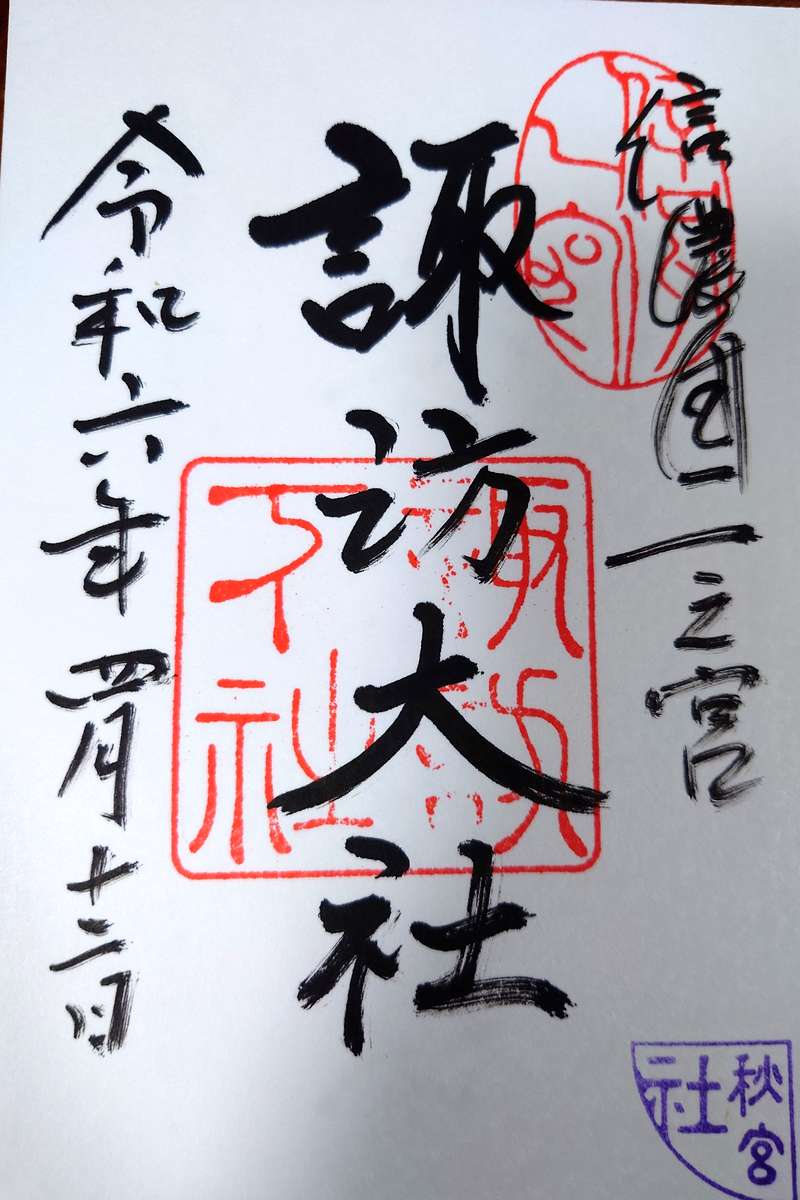 信濃国一之宮
諏訪大社
令和六年四月十二日
諏訪
下社
秋宮
社